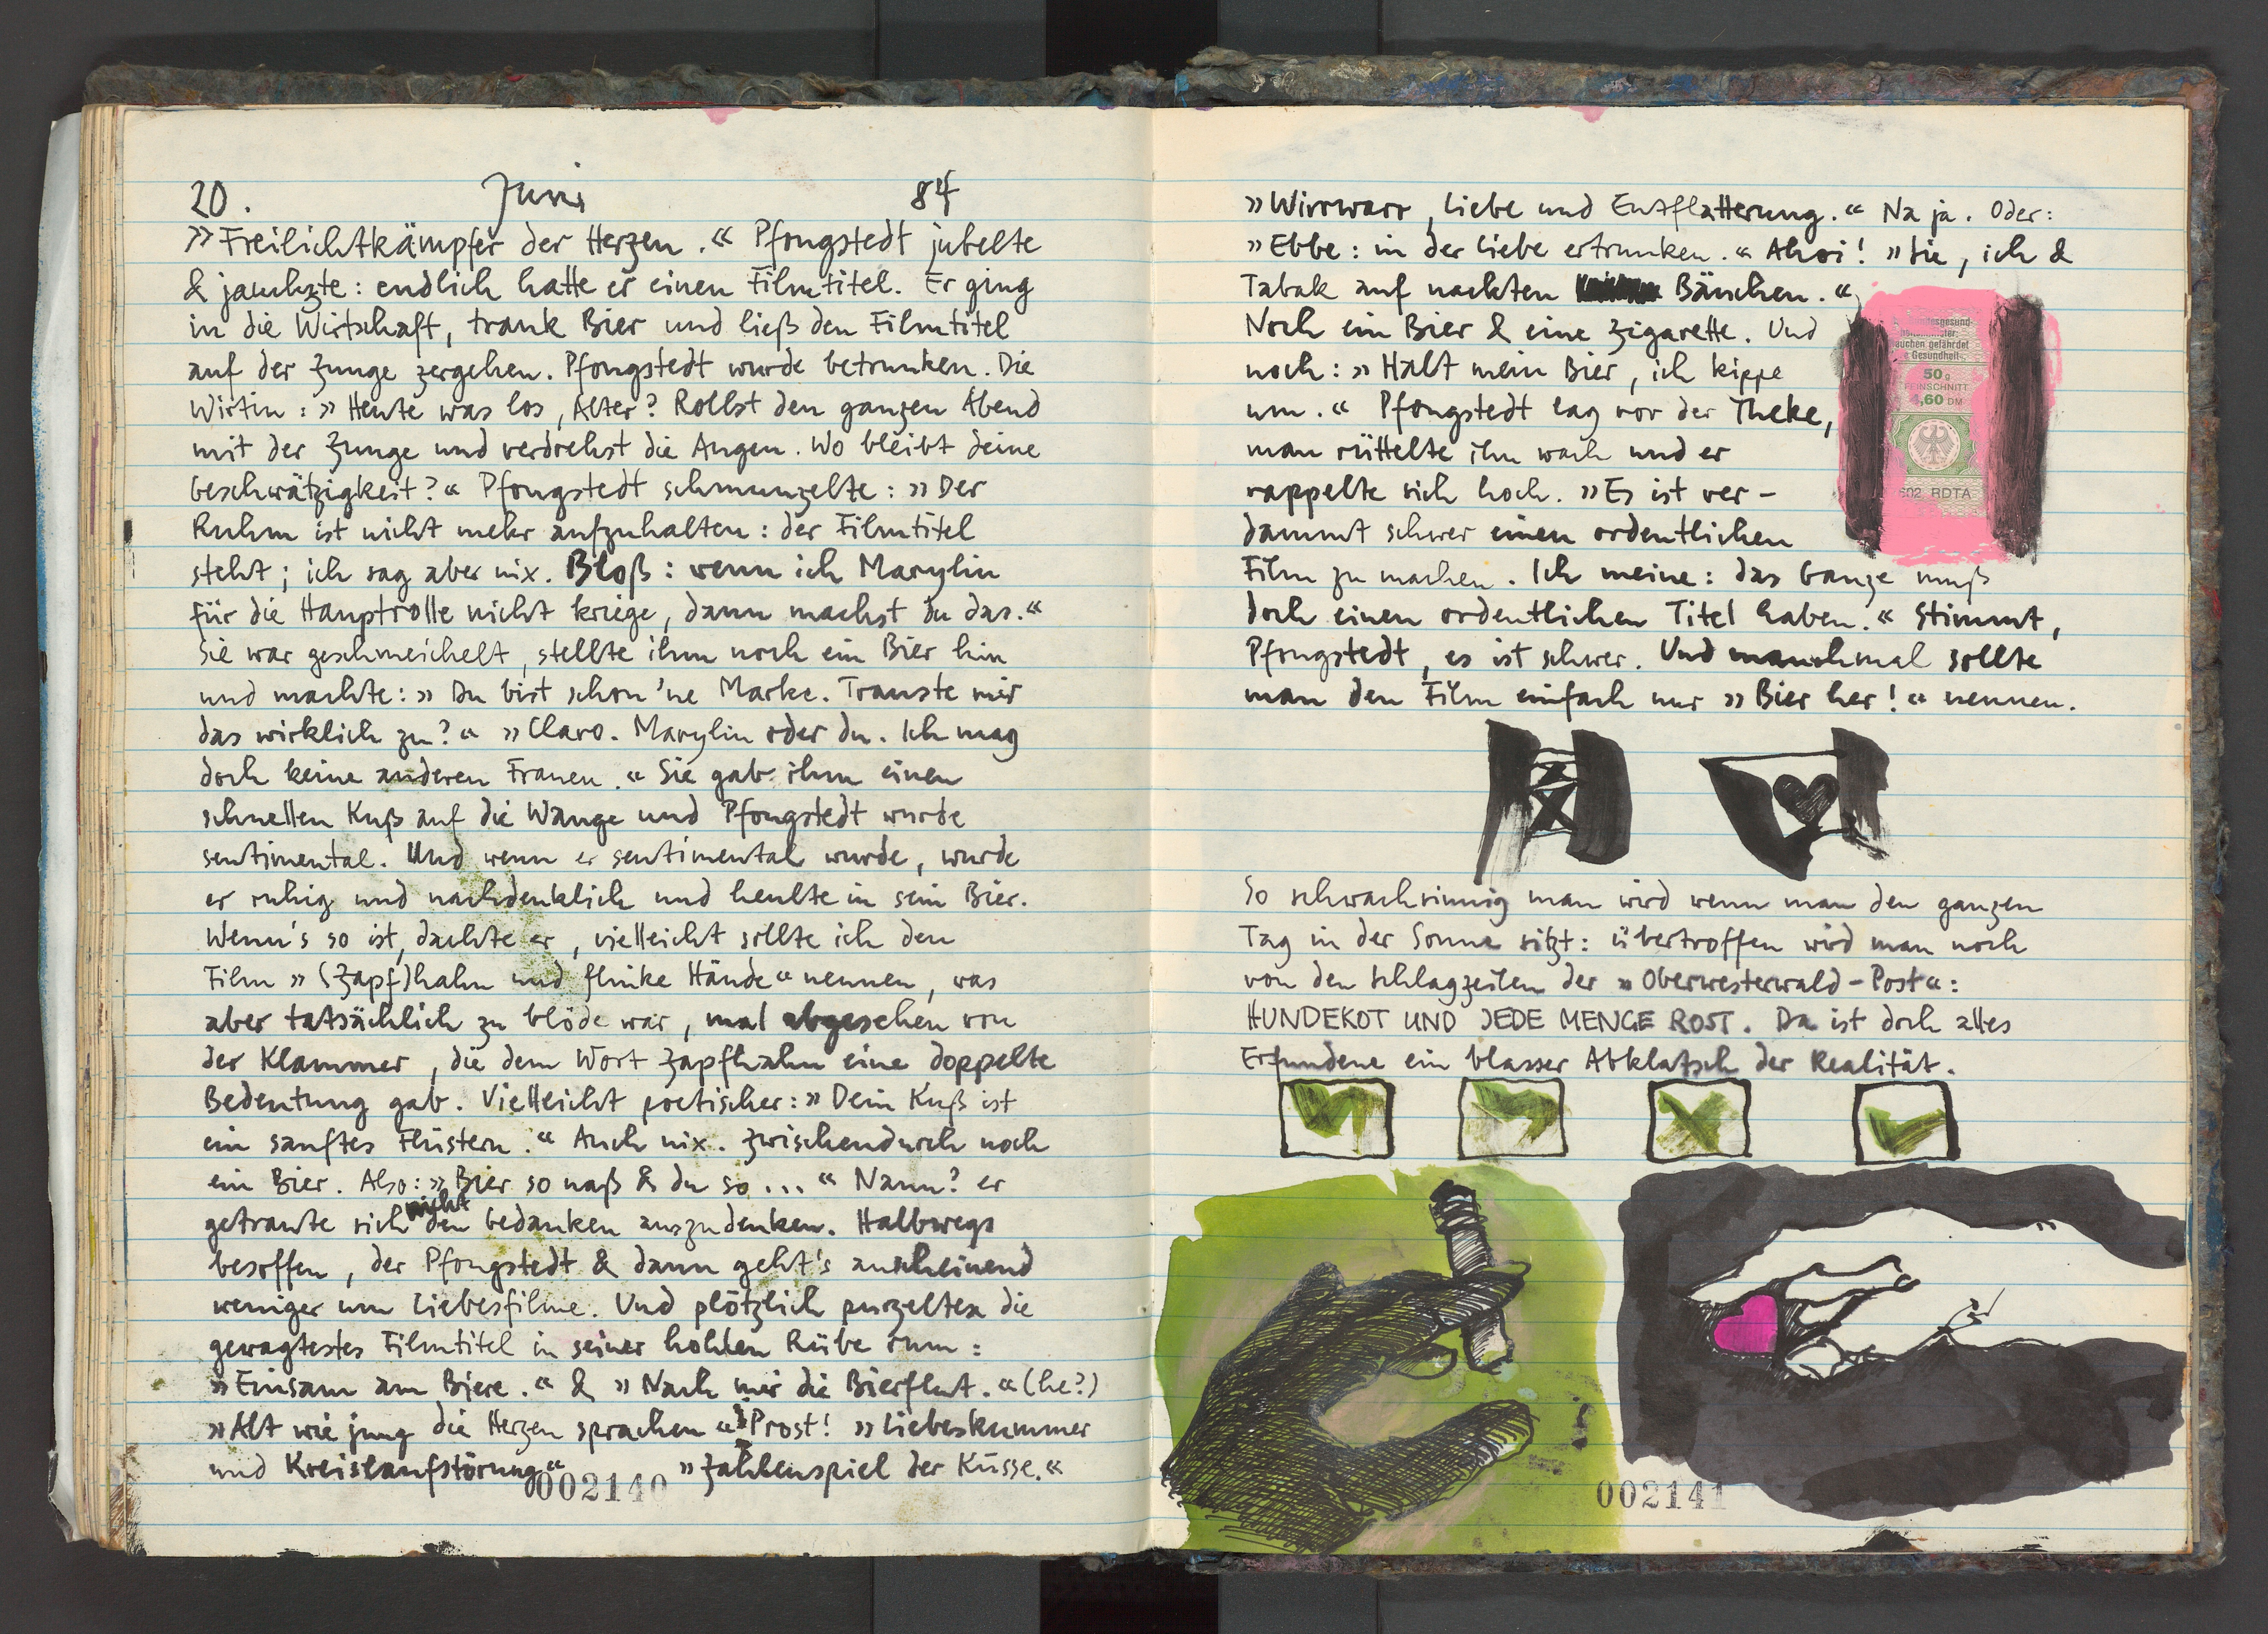 20. Juni 84
»Freilichtkämpfer der Herzen.« Pfongstedt jubelte
& jauchzte: endlich hatte er einen Filmtitel. Er ging
in die Wirtschaft, trank Bier und ließ den Filmtitel
auf der Zunge zergehen. Pfongstedt wurde betrunken. Die
Wirtin: »Heute was los, Alter? Rollst den ganzen Abend
mit der Zunge und verdrehst die Augen. Wo bleibt deine
Geschwätzigkeit?« Pfongstedt schmunzelte: »Der
Ruhm ist nicht mehr aufzuhalten: der Filmtitel
steht; ich sag aber nix. Bloß: wenn ich Marylin
für die Hauptrolle nicht kriege, dann machst du das.«
Sie war geschmeichelt, stellte ihm noch ein Bier hin
und machte: »Du bist schon 'ne Marke. Trauste mir
das wirklich zu?« »Claro. Marylin oder du. Ich mag
doch keine anderen Frauen.« Sie gab ihm einen
schnellen Kuß auf die Wange und Pfongstedt wurde
sentimental. Und wenn er sentimental wurde, wurde
er ruhig und nachdenklich und heulte in sein Bier.
Wenn's so ist, dachte er, vielleicht sollte ich den
Film »(Zapf)hahn und flinke Hände« nennen, was
aber tatsächlich zu blöde war, mal abgesehen von
der Klammer, die dem Wort Zapfhahn eine doppelte
Bedeutung gab. Vielleicht poetischer: »Dein Kuß ist
ein sanftes Flüstern.« Auch nix. Zwischendurch noch
ein Bier. Also: »Bier so naß & du so ...« Nanu? er
getraute sich nicht den Gedanken auszudenken. Halbwegs
besoffen, der Pfongstedt & dann geht's anscheinend
weniger um Liebesfilme. Und plötzlich purzelten die
gewagtestes Filmtitel in seiner hohlen Rübe rum:
»Einsam am Biere.« & »Nach mir die Bierflut.« (he?)
»Alt wie jung die Herzen sprachen« Prost! »Liebeskummer
und Kreislaufstörung« »Zahlenspiel der Küsse.«
002140
»Wirrwarr, Liebe und Entflatterung.« Na ja. Oder:
»Ebbe: in der Liebe ertrunken.« Ahoi! »Sie, ich &
Tabak auf nackten Bäuchen.«
Noch ein Bier & eine Zigarette. Und
noch: »Halt mein Bier, ich kippe
um.« Pfongstedt lag vor der Theke,
man rüttelte ihn wach und er
rappelte sich hoch. »Es ist ver-
dammt schwer einen ordentlichen
Film zu machen. Ich meine: das Ganze muß
doch einen ordentlichen Titel haben.« Stimmt,
Pfongstedt, es ist schwer. Und manchmal sollte
man den Film einfach nur »Bier her!« nennen.
gefährdet
Gesundheit
50 g
FEINSCHNITT
,60 DM
602 RDTA
So schwachsinnig man wird wenn man den ganzen
Tag in der Sonne sitzt: übertroffen wird man noch
von den Schlagzeilen der »Oberwesterwald-Post«:
HUNDEKOT UND JEDE MENGE ROST. Da ist doch alles
Erfundene ein blasser Abklatsch der Realität.
002141